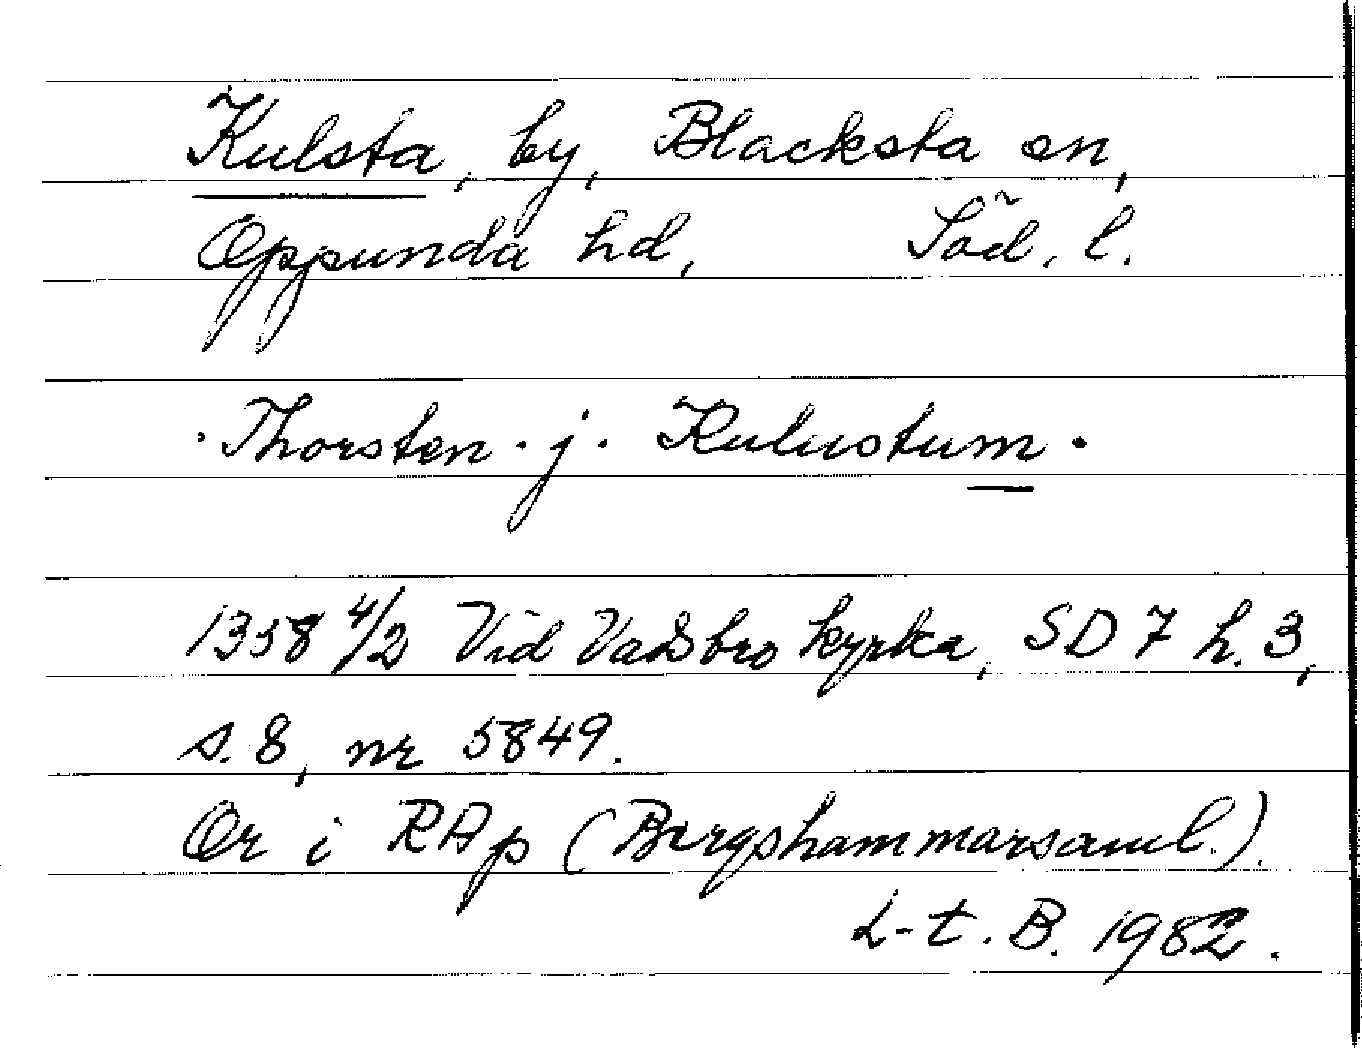 Kulsta, by, Blacksta sn,
Oppunda hd, Söd. l.
. Thorsten . j . Kulustum .
1358 4/2 Vid Vadsbro kyrka, SD 7 h. 3,
s. 8, nr 5849.
Or i RAp (Bergshammarsaml.).
L-t. B. 1982.